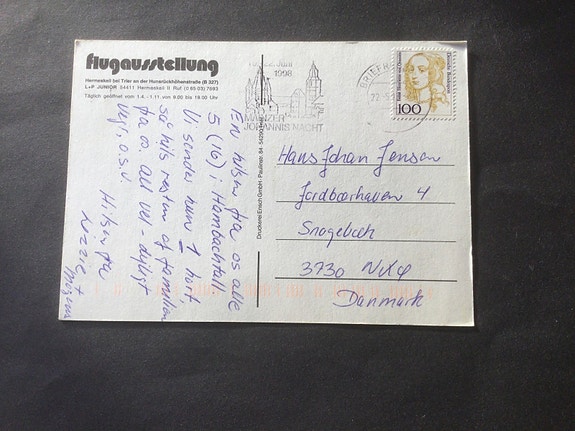 flugausstellung
Hermeskeil bei Trier an der Hunsrückhöhenstraße (B 327)
L+P JUNIOR 54411 Hermeskeil II Ruf (0 65 03) 7693
Täglich geöffnet vom 1.4. - 1.11. von 9.00 bis 18.00 Uhr
22. Juni
1998
MAINZER
JOHANNISNACHT
BRIEF
22
Deutsche Bundespost
100
Druckerei Ensch GmbH · Paulinstr. 84 · 54292
En hilsen fra os alle
5 (16) i Hambachtal
Vi sender kun 1 kort
så hils resten af familien
fra os alle
vejr, o.s.v.
Hilsen fra
Lizzie +
Mogens
Hans Johan Jensen
Jordbærhaven 4
Snogebæk
3730 Nexø
Danmark